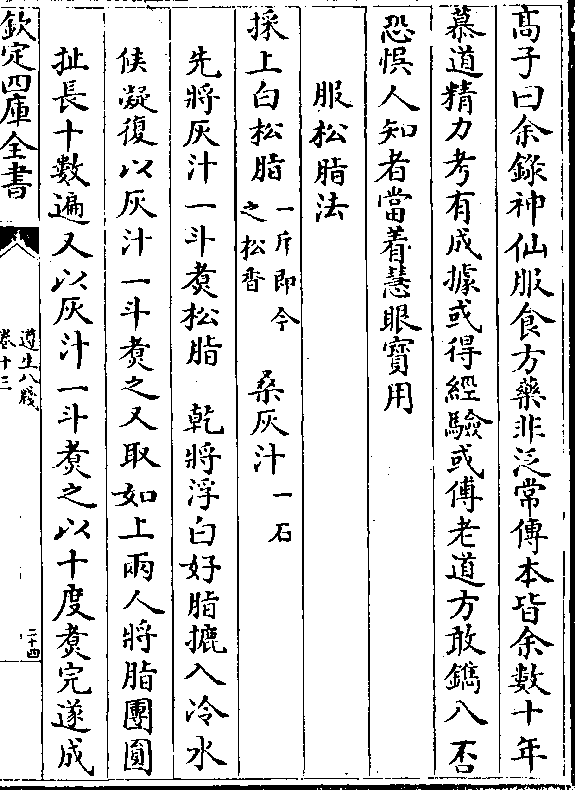 高子曰余錄神仙服食方藥非泛常傳本皆余數十年
慕道精力考有成據或得經驗或傅老道方敢鐫八否
恐悮人知者當着慧眼寳用
服松脂法
採上白松脂一斤即今之松香 桑灰汁一石
先將灰汁一斗煑松脂 乾將浮白好脂摝入冷水
俟凝復以灰汁一斗煑之又取如上兩人將脂團圓
扯長十數遍又以灰汁一斗煑之以十度煑完遂成
欽定四庫全書
遵生八牋
卷十三
二十四